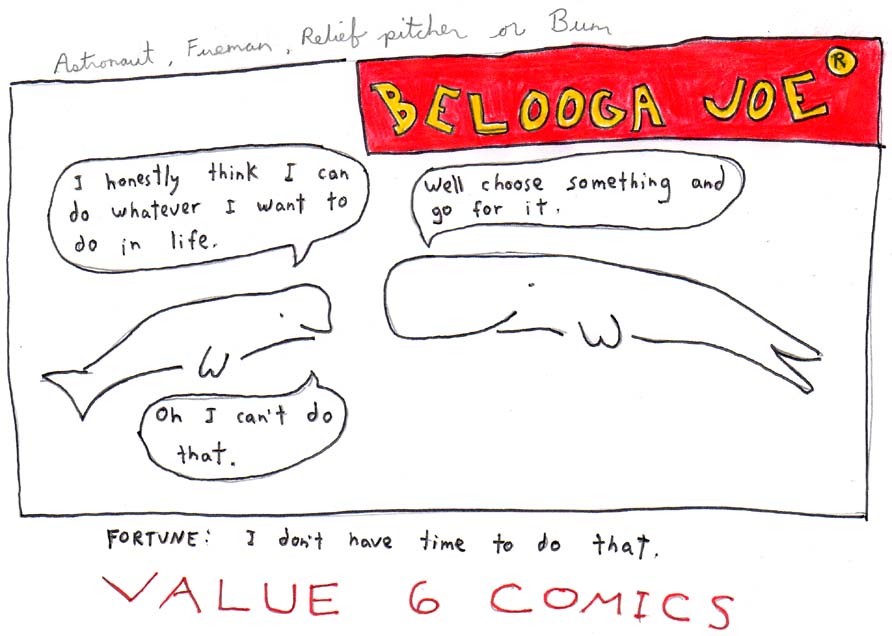 Astronaut, Fireman, Relief pitcher or Bum
BELOOGA JOE®
I honestly think I can
do whatever I want to
do in life.
Well choose something and
go for it.
Oh I can't do
that.
FORTUNE: I don't have time to do that.
VALUE 6 COMICS